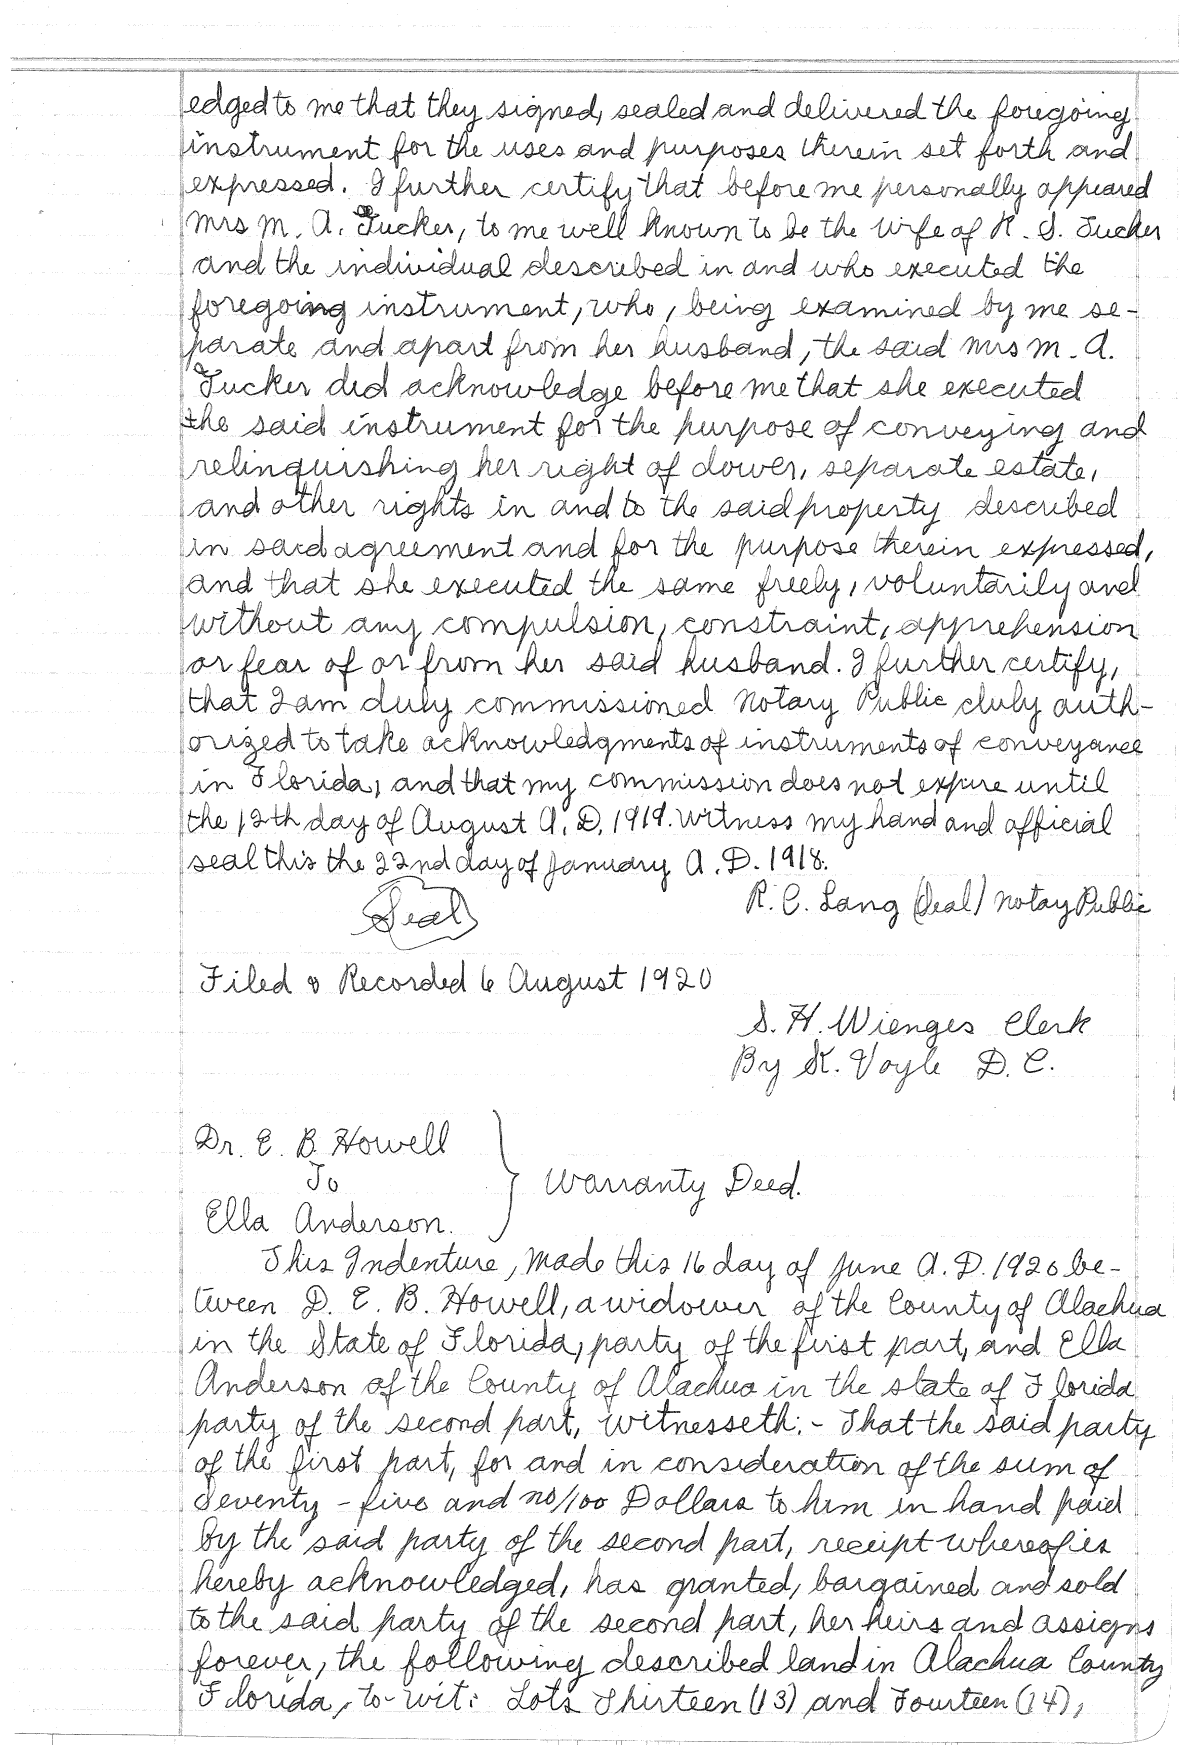 edged to me that they signed, sealed and delivered the foregoing
instrument for the uses and purposes therein set forth and
expressed. I further certify that before me personally appeared
Mrs M. A. Tucker, to me well known to be the wife of R. S. Tucker
and the individual described in and who executed the
foregoing instrument, who, being examined by me se-
parate and apart from her husband, the said Mrs M. A.
Tucker did acknowledge before me that she executed
the said instrument for the purpose of conveying and
relinquishing her right of dower, separate estate,
and other rights in and to the said property described
in said agreement and for the purpose therein expressed,
and that she executed the same freely, voluntarily and
without any compulsion, constraint, apprehension
or fear of or from her said husband. I further certify,
that I am duly commissioned Notary Public duly auth-
orized to take acknowledgments of instruments of conveyance
in Florida, and that my commission does not expire until
the 12th day of August A. D. 1919. Witness my hand and official
seal this the 22nd day of January A. D. 1918.
R. C. Lang (Seal) Notay Public
Seal
Filed & Recorded 6 August 1920
S. H. Wienges Clerk
By K. Voyle D. C.
Dr. E. B. Howell
To
Warranty Deed.
Ella Anderson.
This Indenture, Made this 16 day of June A. D. 1920 be-
tween D. E. B. Howell, a widower of the County of Alachua
in the State of Florida, party of the first part, and Ella
Anderson of the County of Alachua in the state of Florida
party of the second part, Witnesseth:- That the said party
of the first part, for and in consideration of the sum of
Seventy-five and no/100 Dollars to him in hand paid
by the said party of the second part, receipt whereof is
hereby acknowledged, has granted, bargained and sold
to the said party of the second part, her heirs and assigns
forever, the following described land in Alachua County
Florida, to-wit: Lots Thirteen (13) and Fourteen (14),